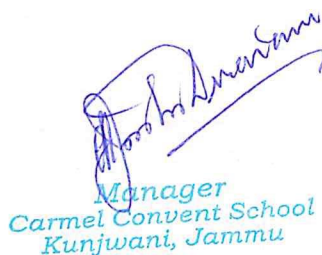 Manager
Carmel Convent School
Kunjwani, Jammu